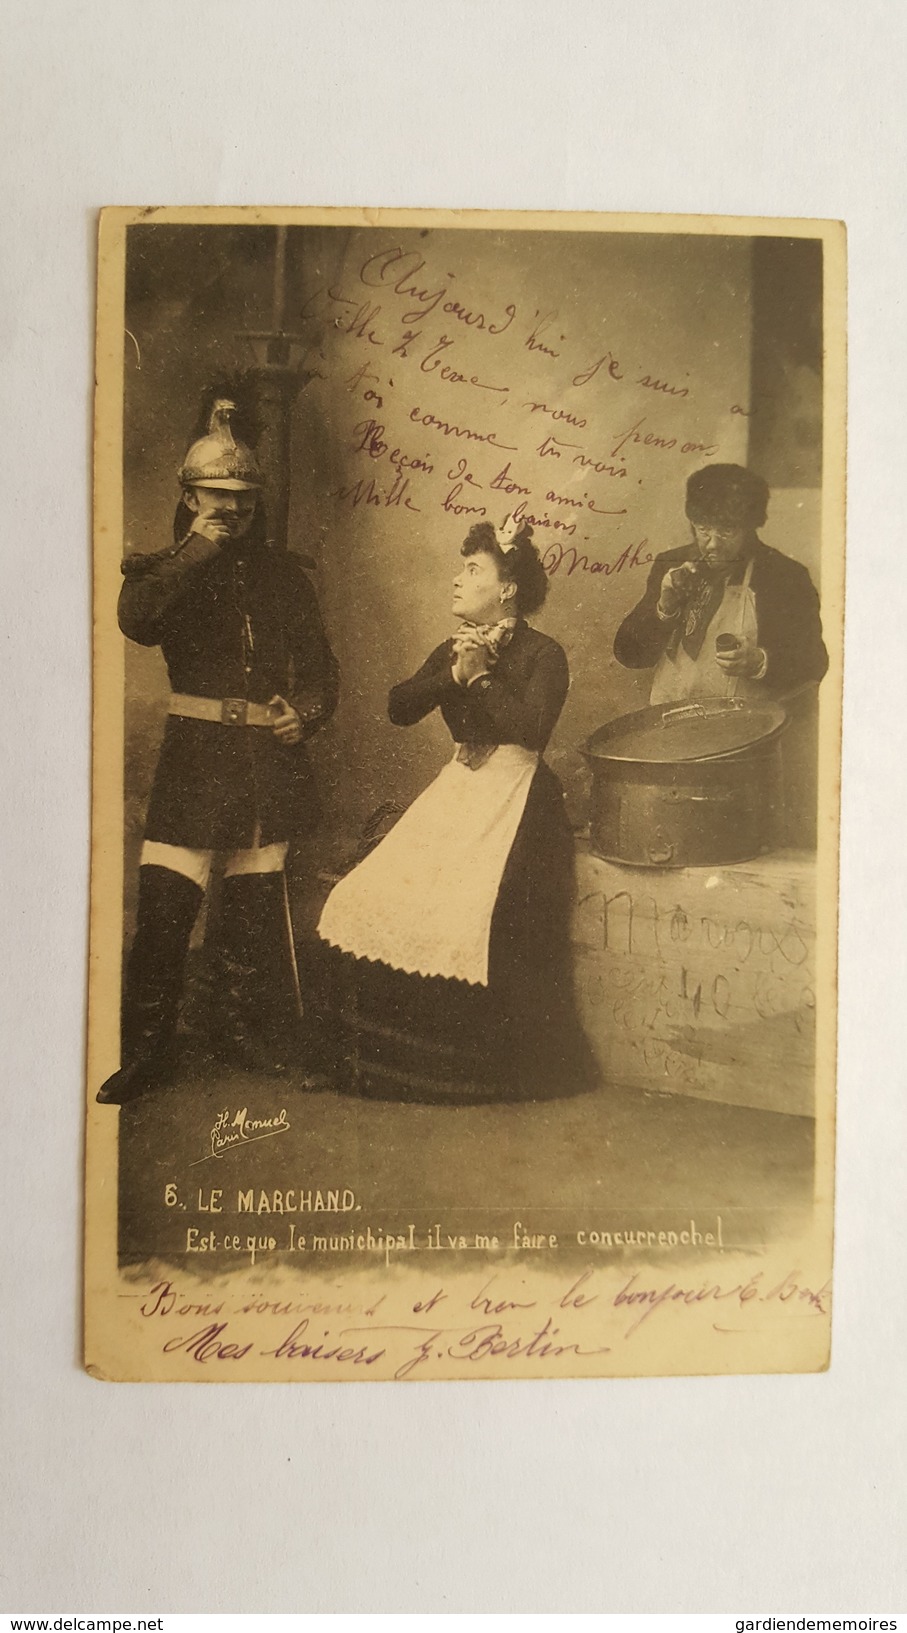 Aujourd'hui je suis a
Ville z Terre, nous pensons
à toi comme tu vois.
Reçois de ton amie
Mille bons baisers
Marthe
Marrons
40 le
H. Manuel
Paris
6. LE MARCHAND.
Est-ce que le munichipal il va me faire concurrenche!
Bons souvenirs et bien le bonjour E. Bertin
Mes baisers y. Bertin
delcampe.net
gardiendememoires